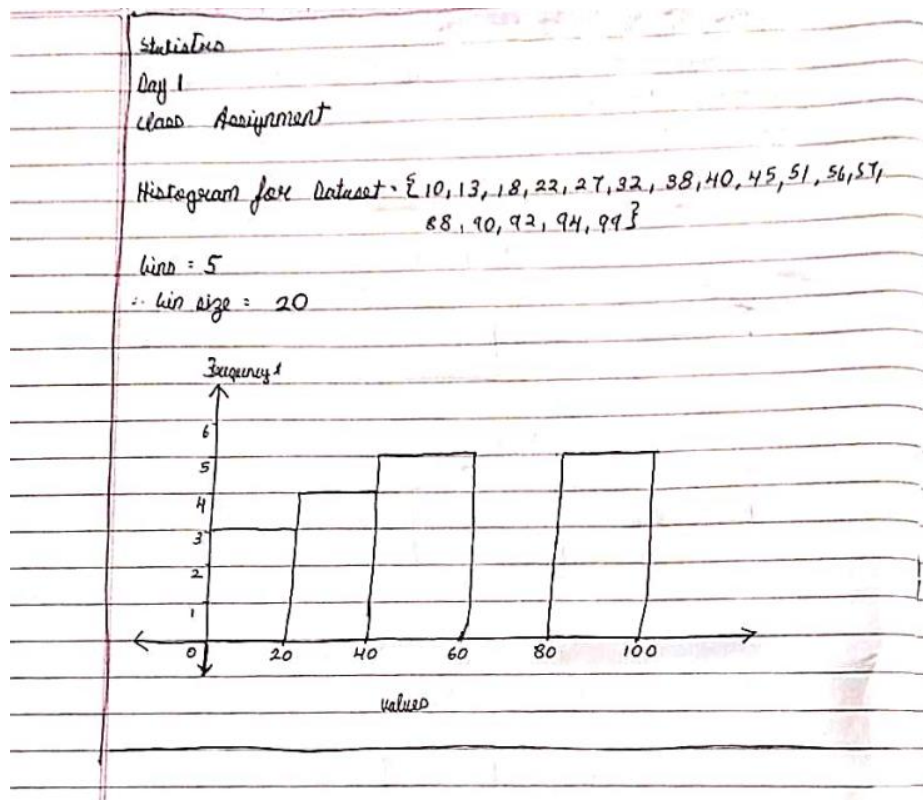 Statistics
Day 1
Class Assignment
Histogram for Dataset · {10, 13, 18, 22, 27, 32, 38, 40, 45, 51, 56, 57,
88, 90, 92, 94, 99}
bins = 5
∴ bin size = 20
Frequency
6
5
4
3
2
1
0 20 40 60 80 100
values